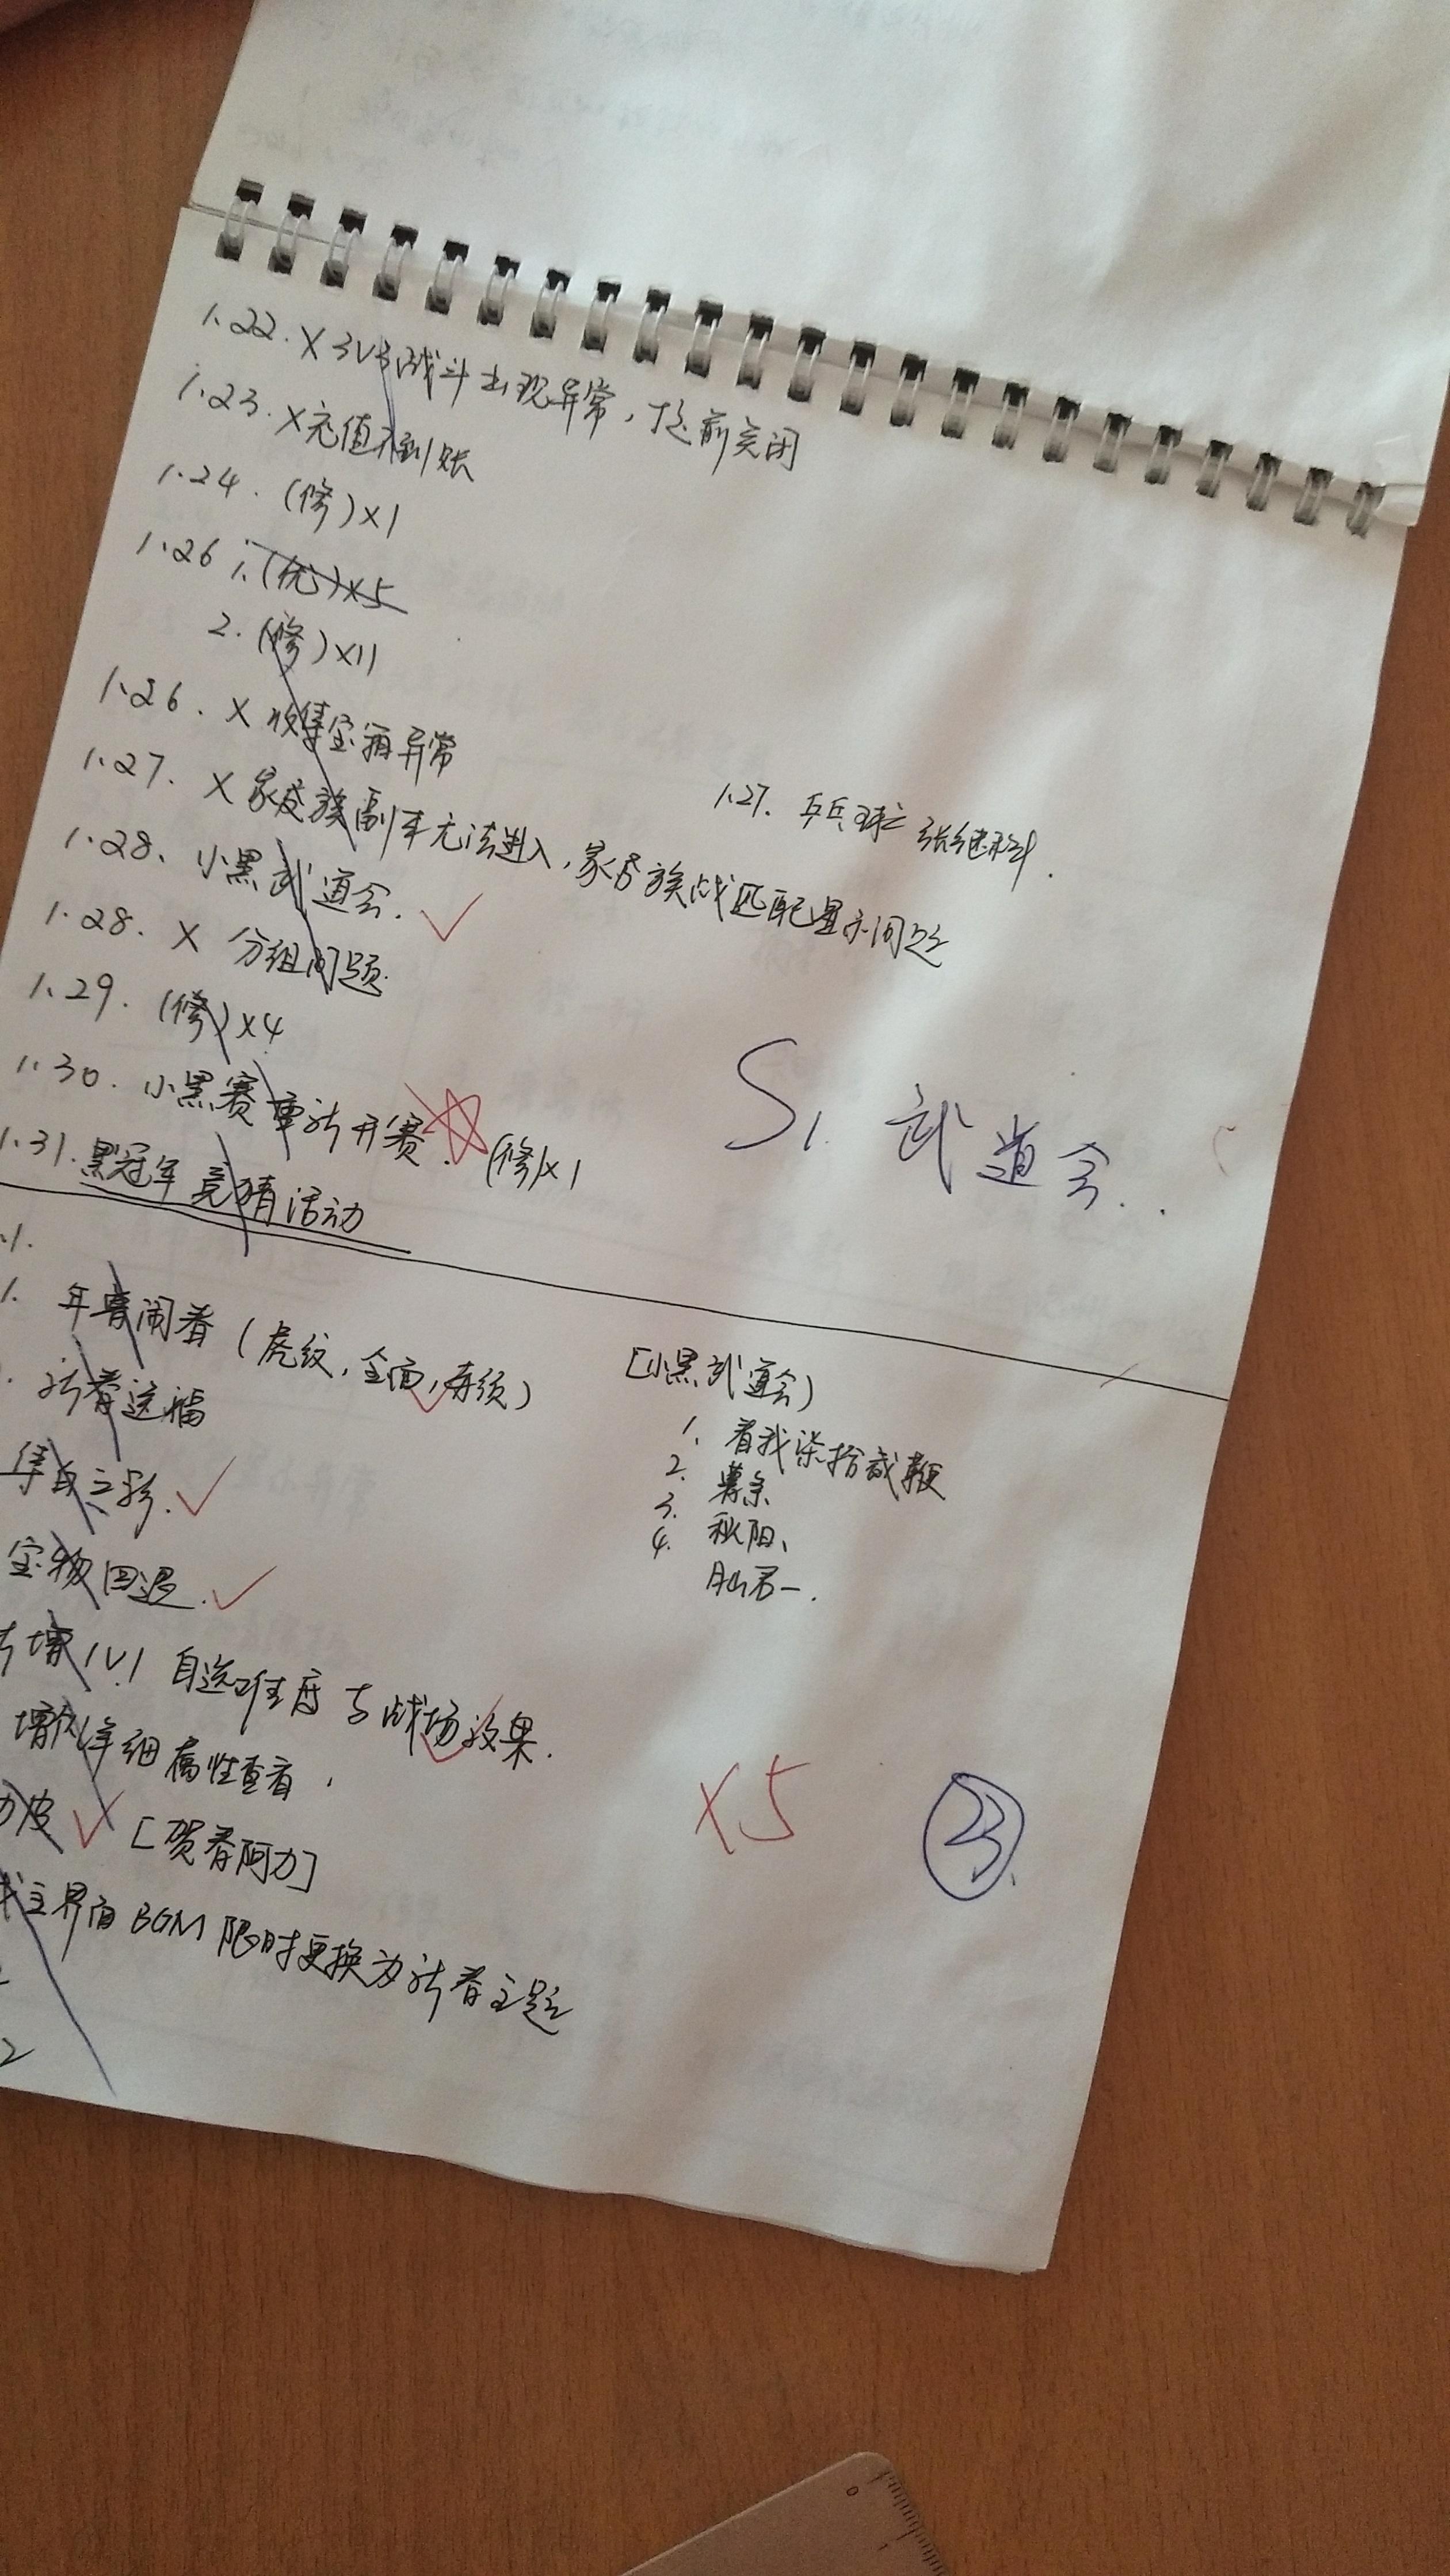 1.22. X 3V3战斗出现异常，提前关闭
1.23. X充值不到账
1.24. (修)×1
1.26 1.(优)×5
2. (修)×11
1.26. X 收集宝箱异常
1.27. X 家族副本无法进入，家族战匹配显示问题
1.27. 乒乓球 张继科.
1.28、小黑武道会.
1.28. X 分组问题.
1.29. (修)×4
1.30. 小黑赛重新开赛. (修)×1
1.31. 黑冠军竞猜活动
S1. 武道会..
1.
1. 年兽闹春 (虎纹,全面,
新春送福
宝物回退.
增1V1 自选难度与战场效果.
详细属性查看.
皮 [贺春阿力]
主界面BGM限时更换为新春主题
2
[小黑武道会)
1. 看我柒拾贰鞭
2.
3. 秋阳、
4.
×5
23.
0